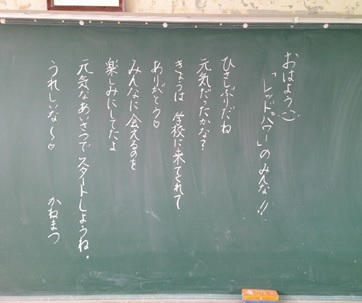 おはよう
「レッドパワー」のみんな!!
ひさしぶりだね
元気だったかな?
きょうは 学校に来てくれて
ありがとう♡
みんなに会えるのを
楽しみにしてたよ
元気なあいさつでスタートしようね。
うれしいな〜♡ かねまつ